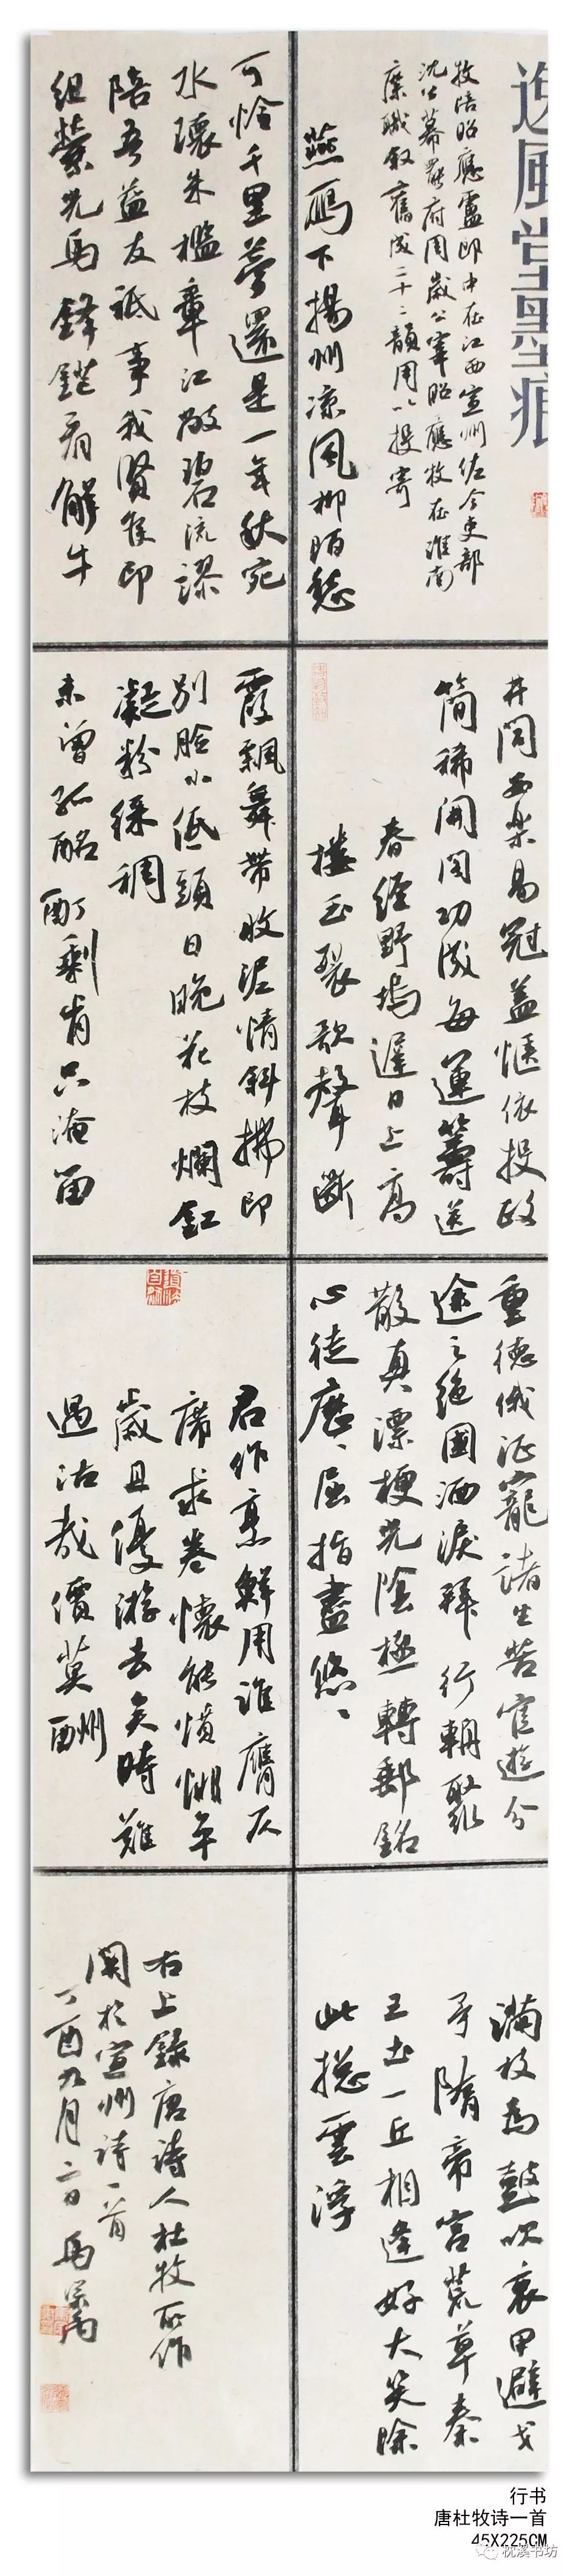 逸風堂墨痕
牧陪昭應盧郎中在江西宣州佐今吏部
沈公幕罷府周歲公宰昭應牧在淮南
縻職叙舊成二十二韻用以投寄
燕鴈下揚州凉風柳陌愁
可憐千里夢還是一年秋宛
水環朱檻章江敞碧流謬
陪吾益友祗事我賢侯印
組縈光馬鋒鋩看解牛
井閭安樂易冠蓋愜依投政
簡稀開閣功成每運籌送
春經野塢遲日上高
樓玉裂歌聲斷
霞飄舞帶收泥情斜拂印
别臉小低頭日晚花枝爛釭
凝粉綵稠
未曾孤酩酊剩肯只淹留
重德俄征寵諸生苦宦遊分
途之絶國洒淚拜行輈聚
散真漂梗光陰極轉郵銘
心徒歷〻屈指盡悠〻
君作烹鮮用誰膺仄
席求卷懷能憤悱卒
歲且優游去矣時難
遇沽哉價莫酬
滿枝為鼓吹衷甲避戈
矛隋帝宫荒草秦
王土一丘相逢好大笑除
此揔雲浮
右上録唐詩人杜牧所作
関於宣州诗一首
丁酉九月二日
行书
唐杜牧诗一首
45X225CM
枕溪书坊